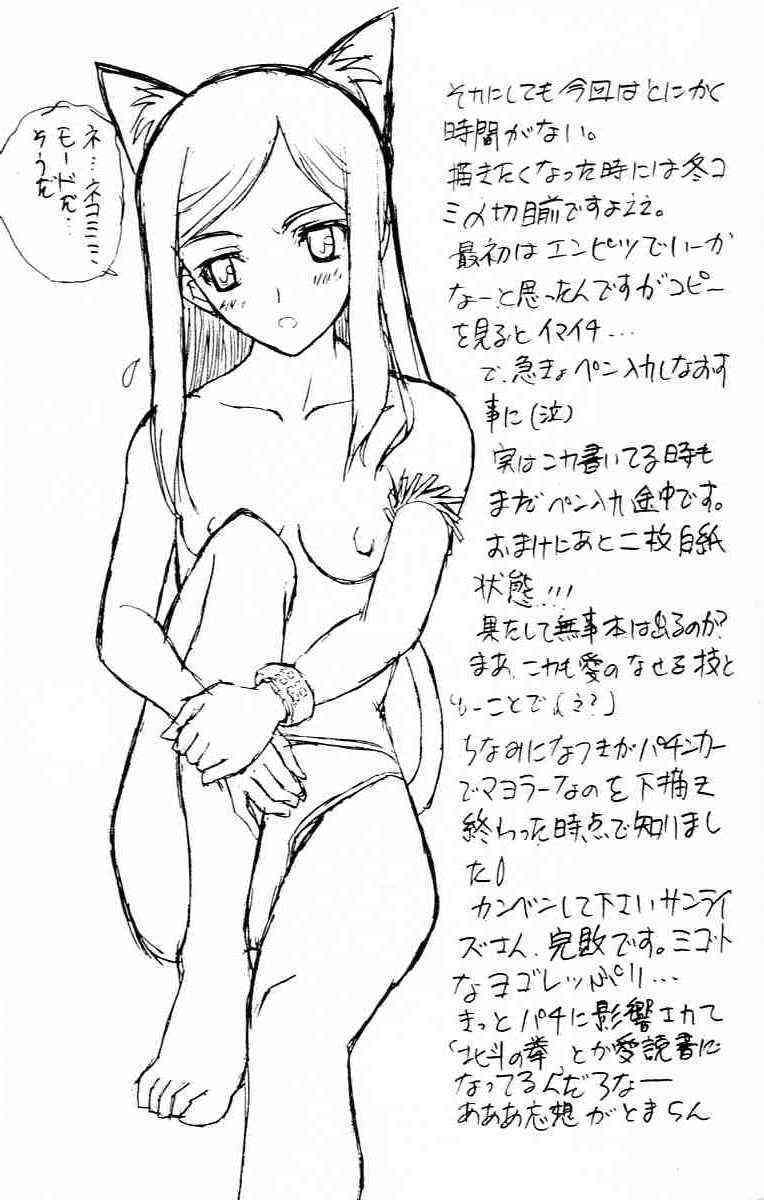 ネ…ネコミミ
モードだ…
そうだ
それにしても今回はとにかく
時間がない。
描きたくなった時には冬コ
ミ〆切目前ですよ
最初はエンピツでいーか
なーと思ったんですがコピー
を見るとイマイチ…
で、急きょペン入れしなおす
事に(泣)
実はこれ書いてる時も
まだペン入れ途中です。
おまけにあと二枚白紙
状態!!!
果たして無事本は出るのか?
まあ、これも愛のなせる技と
いーことで(え?)
ちなみになつきがパチンカー
でマヨラーなのを下描き
終わった時点で知りまし
た
カンベンして下さいサンライ
ズさん、完敗です。ミゴト
なヨゴレッぷり…
きっとパチに影響されて
「北斗の拳」とか愛読書に
なってるんだろなー
あああ妄想がとまらん